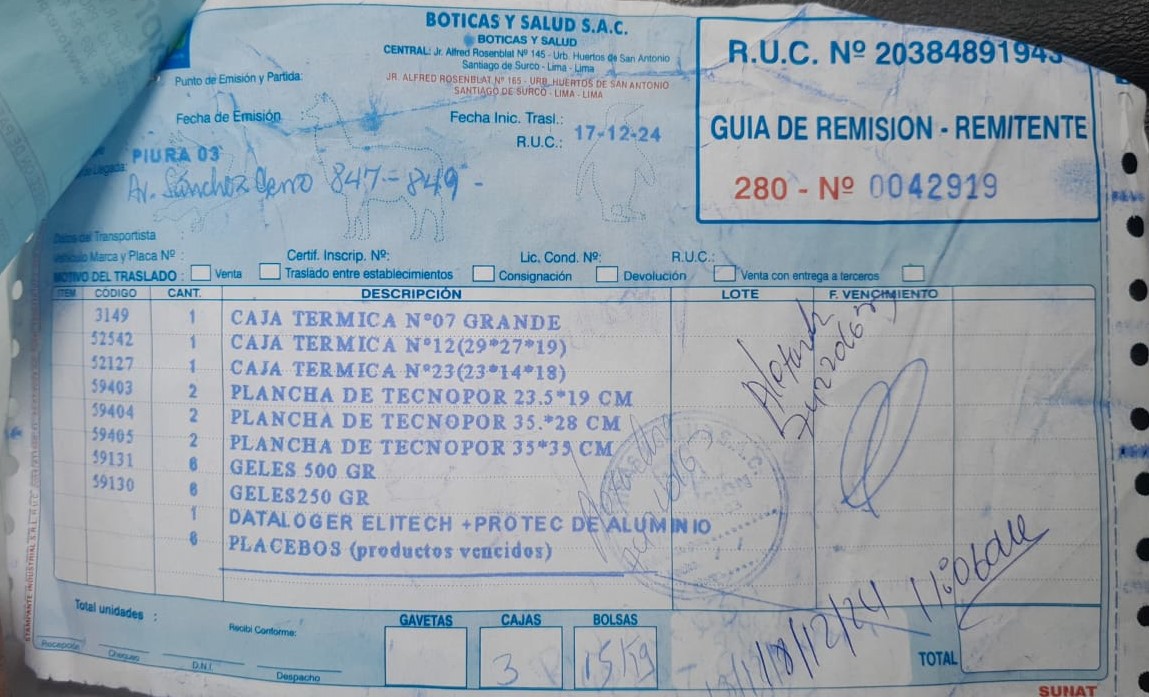 BOTICAS Y SALUD S.A.C.
BOTICAS Y SALUD
CENTRAL: Jr. Alfred Rosenblat Nº 145 - Urb. Huertos de San Antonio
Santiago de Surco - Lima - Lima
JR. ALFRED ROSENBLAT Nº 165 - URB. HUERTOS DE SAN ANTONIO
SANTIAGO DE SURCO - LIMA - LIMA
R.U.C. Nº 20384891943
GUIA DE REMISION - REMITENTE
280 - Nº 0042919
Punto de Emisión y Partida:
Fecha de Emisión :
Fecha Inic. Trasl.:
R.U.C.: 17-12-24
Llegada: PIURA 03
Av. Sánchez Cerro 847 - 849 -
Datos del Transportista :
Vehículo Marca y Placa Nº : Certif. Inscrip. Nº: Lic. Cond. Nº: R.U.C.:
MOTIVO DEL TRASLADO : Venta Traslado entre establecimientos Consignación Devolución Venta con entrega a terceros
ITEM CÓDIGO CANT. DESCRIPCIÓN LOTE F. VENCIMIENTO
3149 1 CAJA TERMICA Nº07 GRANDE
52542 1 CAJA TERMICA Nº12(29*27*19)
52127 1 CAJA TERMICA Nº23(23*14*18)
59403 2 PLANCHA DE TECNOPOR 23.5*19 CM
59404 2 PLANCHA DE TECNOPOR 35.*28 CM
59405 2 PLANCHA DE TECNOPOR 35*35 CM
59131 6 GELES 500 GR
59130 6 GELES250 GR
1 DATALOGER ELITECH +PROTEC DE ALUMINIO
6 PLACEBOS (productos vencidos)
18/12/24 11:06
Total unidades :
Recibí Conforme:
GAVETAS CAJAS BOLSAS
3 15 Kg
TOTAL
Recepción Chequeo D.N.I. Despacho
SUNAT